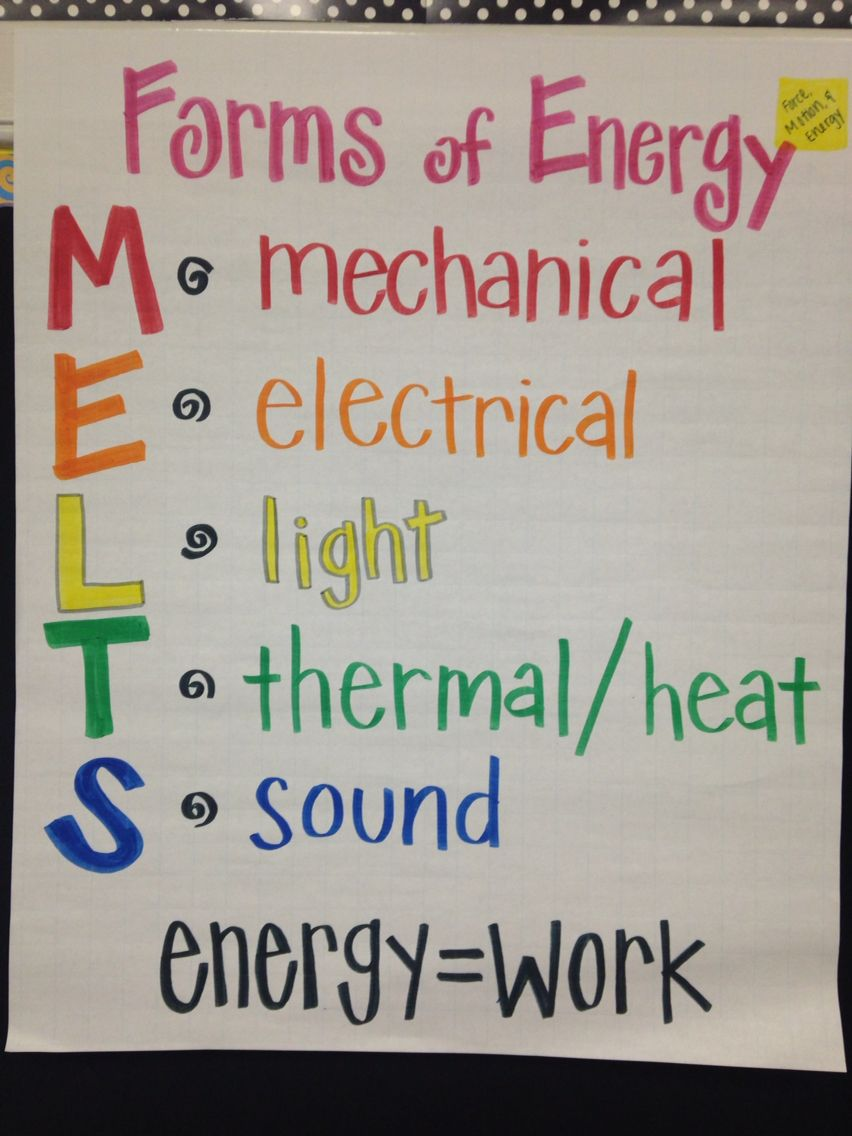 Forms of Energy
Force,
Motion, &
Energy
M • mechanical
E • electrical
L • light
T • thermal/heat
S • sound
energy=work